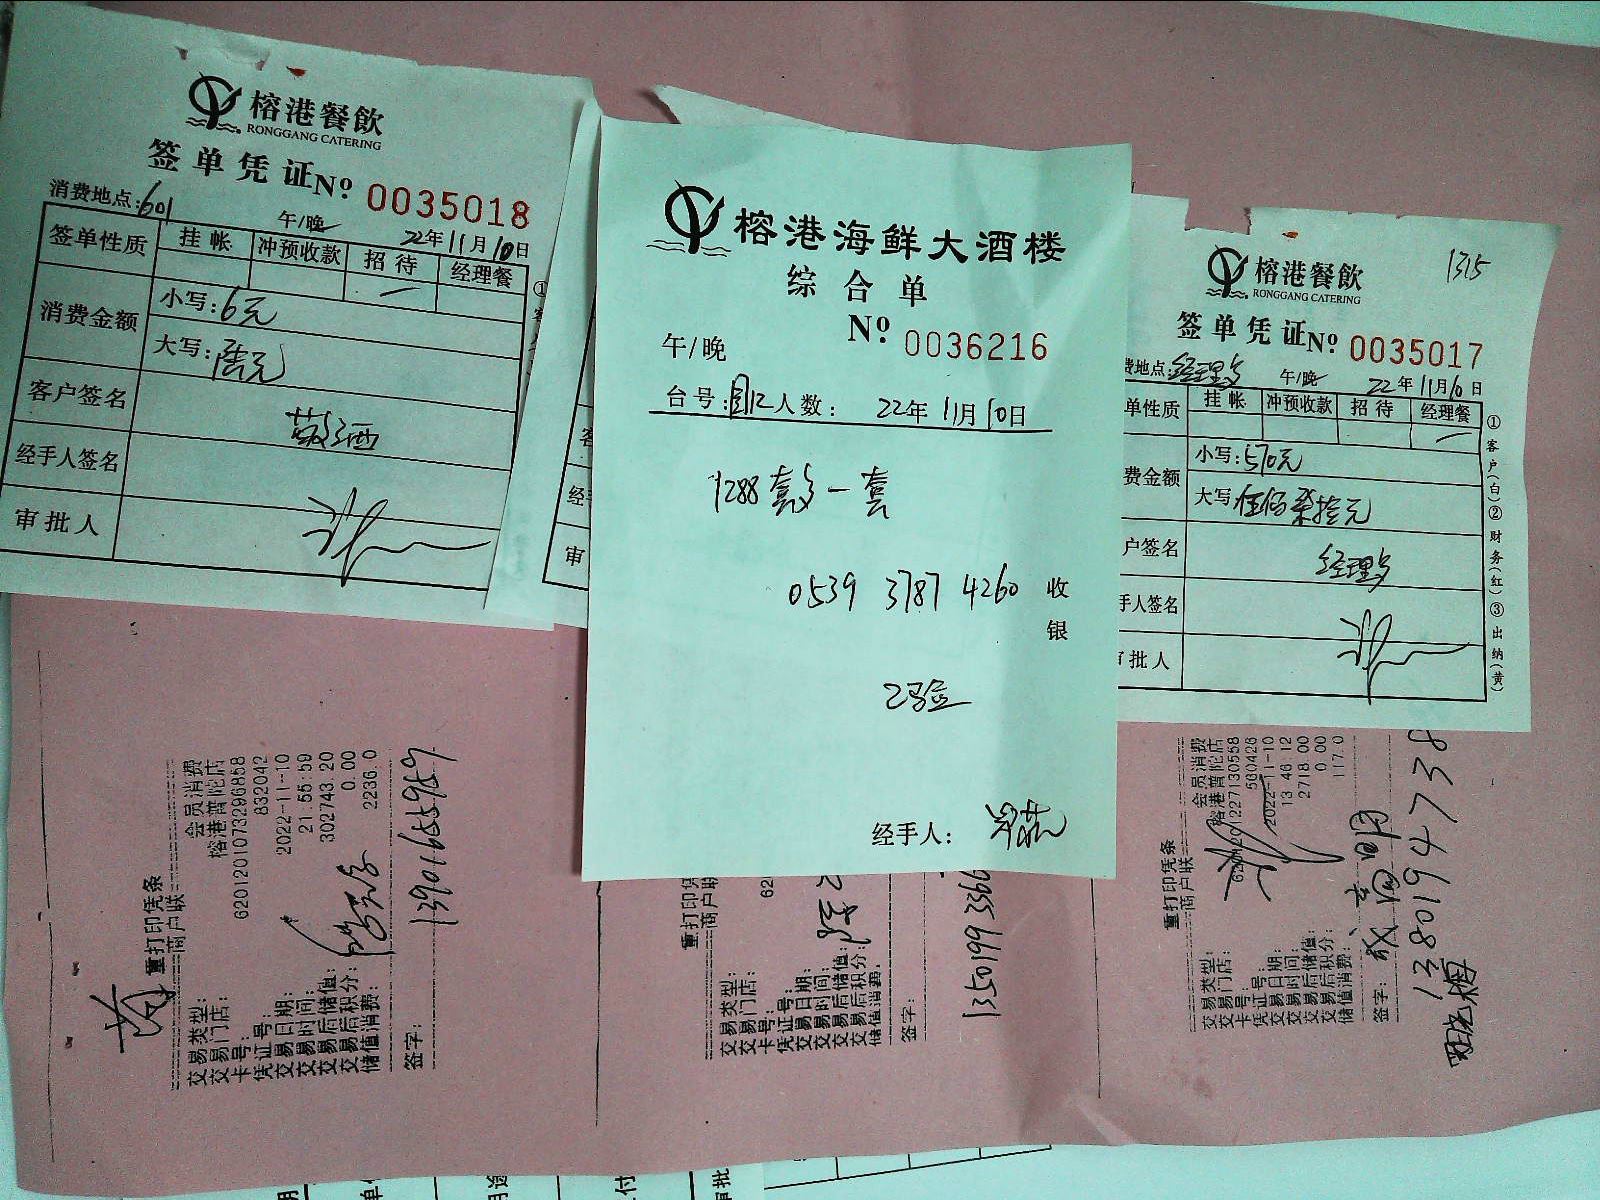 榕港餐飲
RONGGANG CATERING
签单凭证 Nº 0035018
消费地点:601
午/晚
22年11月10日
签单性质 挂帐 冲预收款 招待 经理餐
消费金额
小写:6元
大写:陆元
客户签名
经手人签名
审批人
榕港海鲜大酒楼
综合单
Nº 0036216
午/晚
台号: 人数: 22年11月10日
1288套 一套
0539 3787 4260 收
银
已验
经手人:
1315
榕港餐飲
RONGGANG CATERING
签单凭证 Nº 0035017
费地点:经理
午/晚
22年11月10日
单性质 挂帐 冲预收款 招待 经理餐
费金额
小写:570元
大写:伍佰柒拾元
户签名 经理
手人签名
审批人
①客户(白)②财务(红)③出纳(黄)
重打印凭条
商户联
交易类型: 会员消费
交易门店: 榕港普陀店
卡号: 6201201073296858
凭证号: 832042
交易日期: 2022-11-10
交易时间: 21:55:59
交易后储值: 302743.20
交易后积分: 0.00
储值消费: 2236.0
签字:
13901655989
重打印凭
商户联
交易类型:
交易门店:
卡号: 62
凭证号:
交易日期:
交易时间:
交易后储值:
交易后积分:
储值消费:
签字:
13501993366
重打印凭条
商户联
交易类型: 会员消费
交易门店: 榕港普陀店
卡号: 6201201227130558
凭证号: 560426
交易日期: 2022-11-10
交易时间: 13:46:12
交易后储值: 2718.00
交易后积分: 0.00
储值消费: 117.0
签字:
13801947738